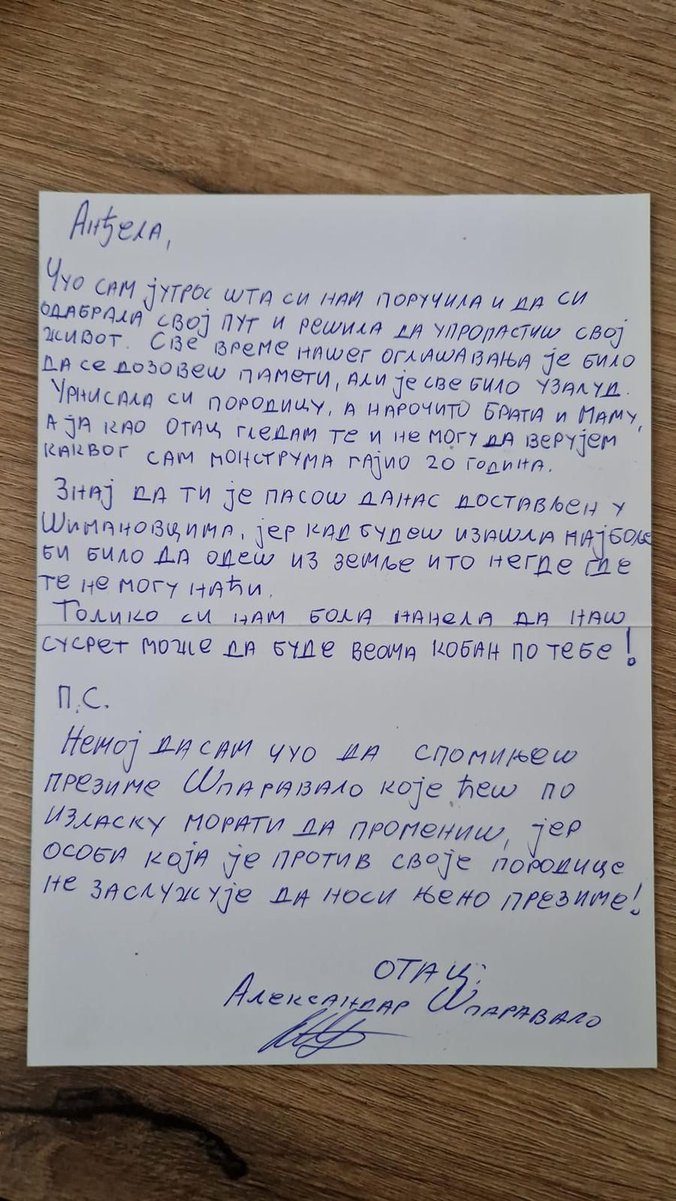 Анђела,
Чуо сам јутрос шта си нам поручила и да си
одабрала свој пут и решила да упропастиш свој
живот. Све време нашег оглашавања је било
да се дозовеш памети, али је све било узалуд.
Урнисала си породицу, а нарочито брата и маму,
а ја као отац гледам те и не могу да верујем
каквог сам монструма гајио 20 година.
Знај да ти је пасош данас достављен у
Шимановцима, јер кад будеш изашла најбоље
би било да одеш из земље и то негде где
те не могу наћи.
Толико си нам бола нанела да наш
сусрет може да буде веома кобан по тебе!
П.С.
Немој да сам чуо да спомињеш
презиме Шпаравало које ћеш по
изласку морати да промениш, јер
особа која је против своје породице
не заслужује да носи њено презиме!
Отац:
Александар Шпаравало